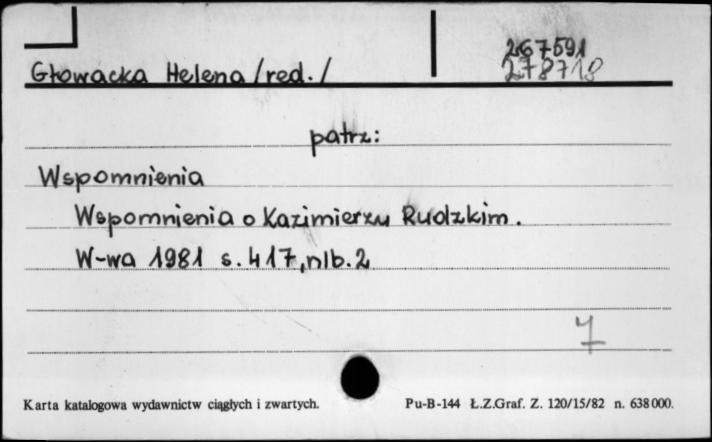 267591
Głowacka Helena /red./ 278718
patrz:
Wspomnienia
Wspomnienia o Kazimierzu Rudzkim.
W-wa 1981 s. 417, nlb. 2
7
Karta katalogowa wydawnictw ciągłych i zwartych. Pu-B-144 Ł.Z.Graf. Z. 120/15/82 n. 638 000.